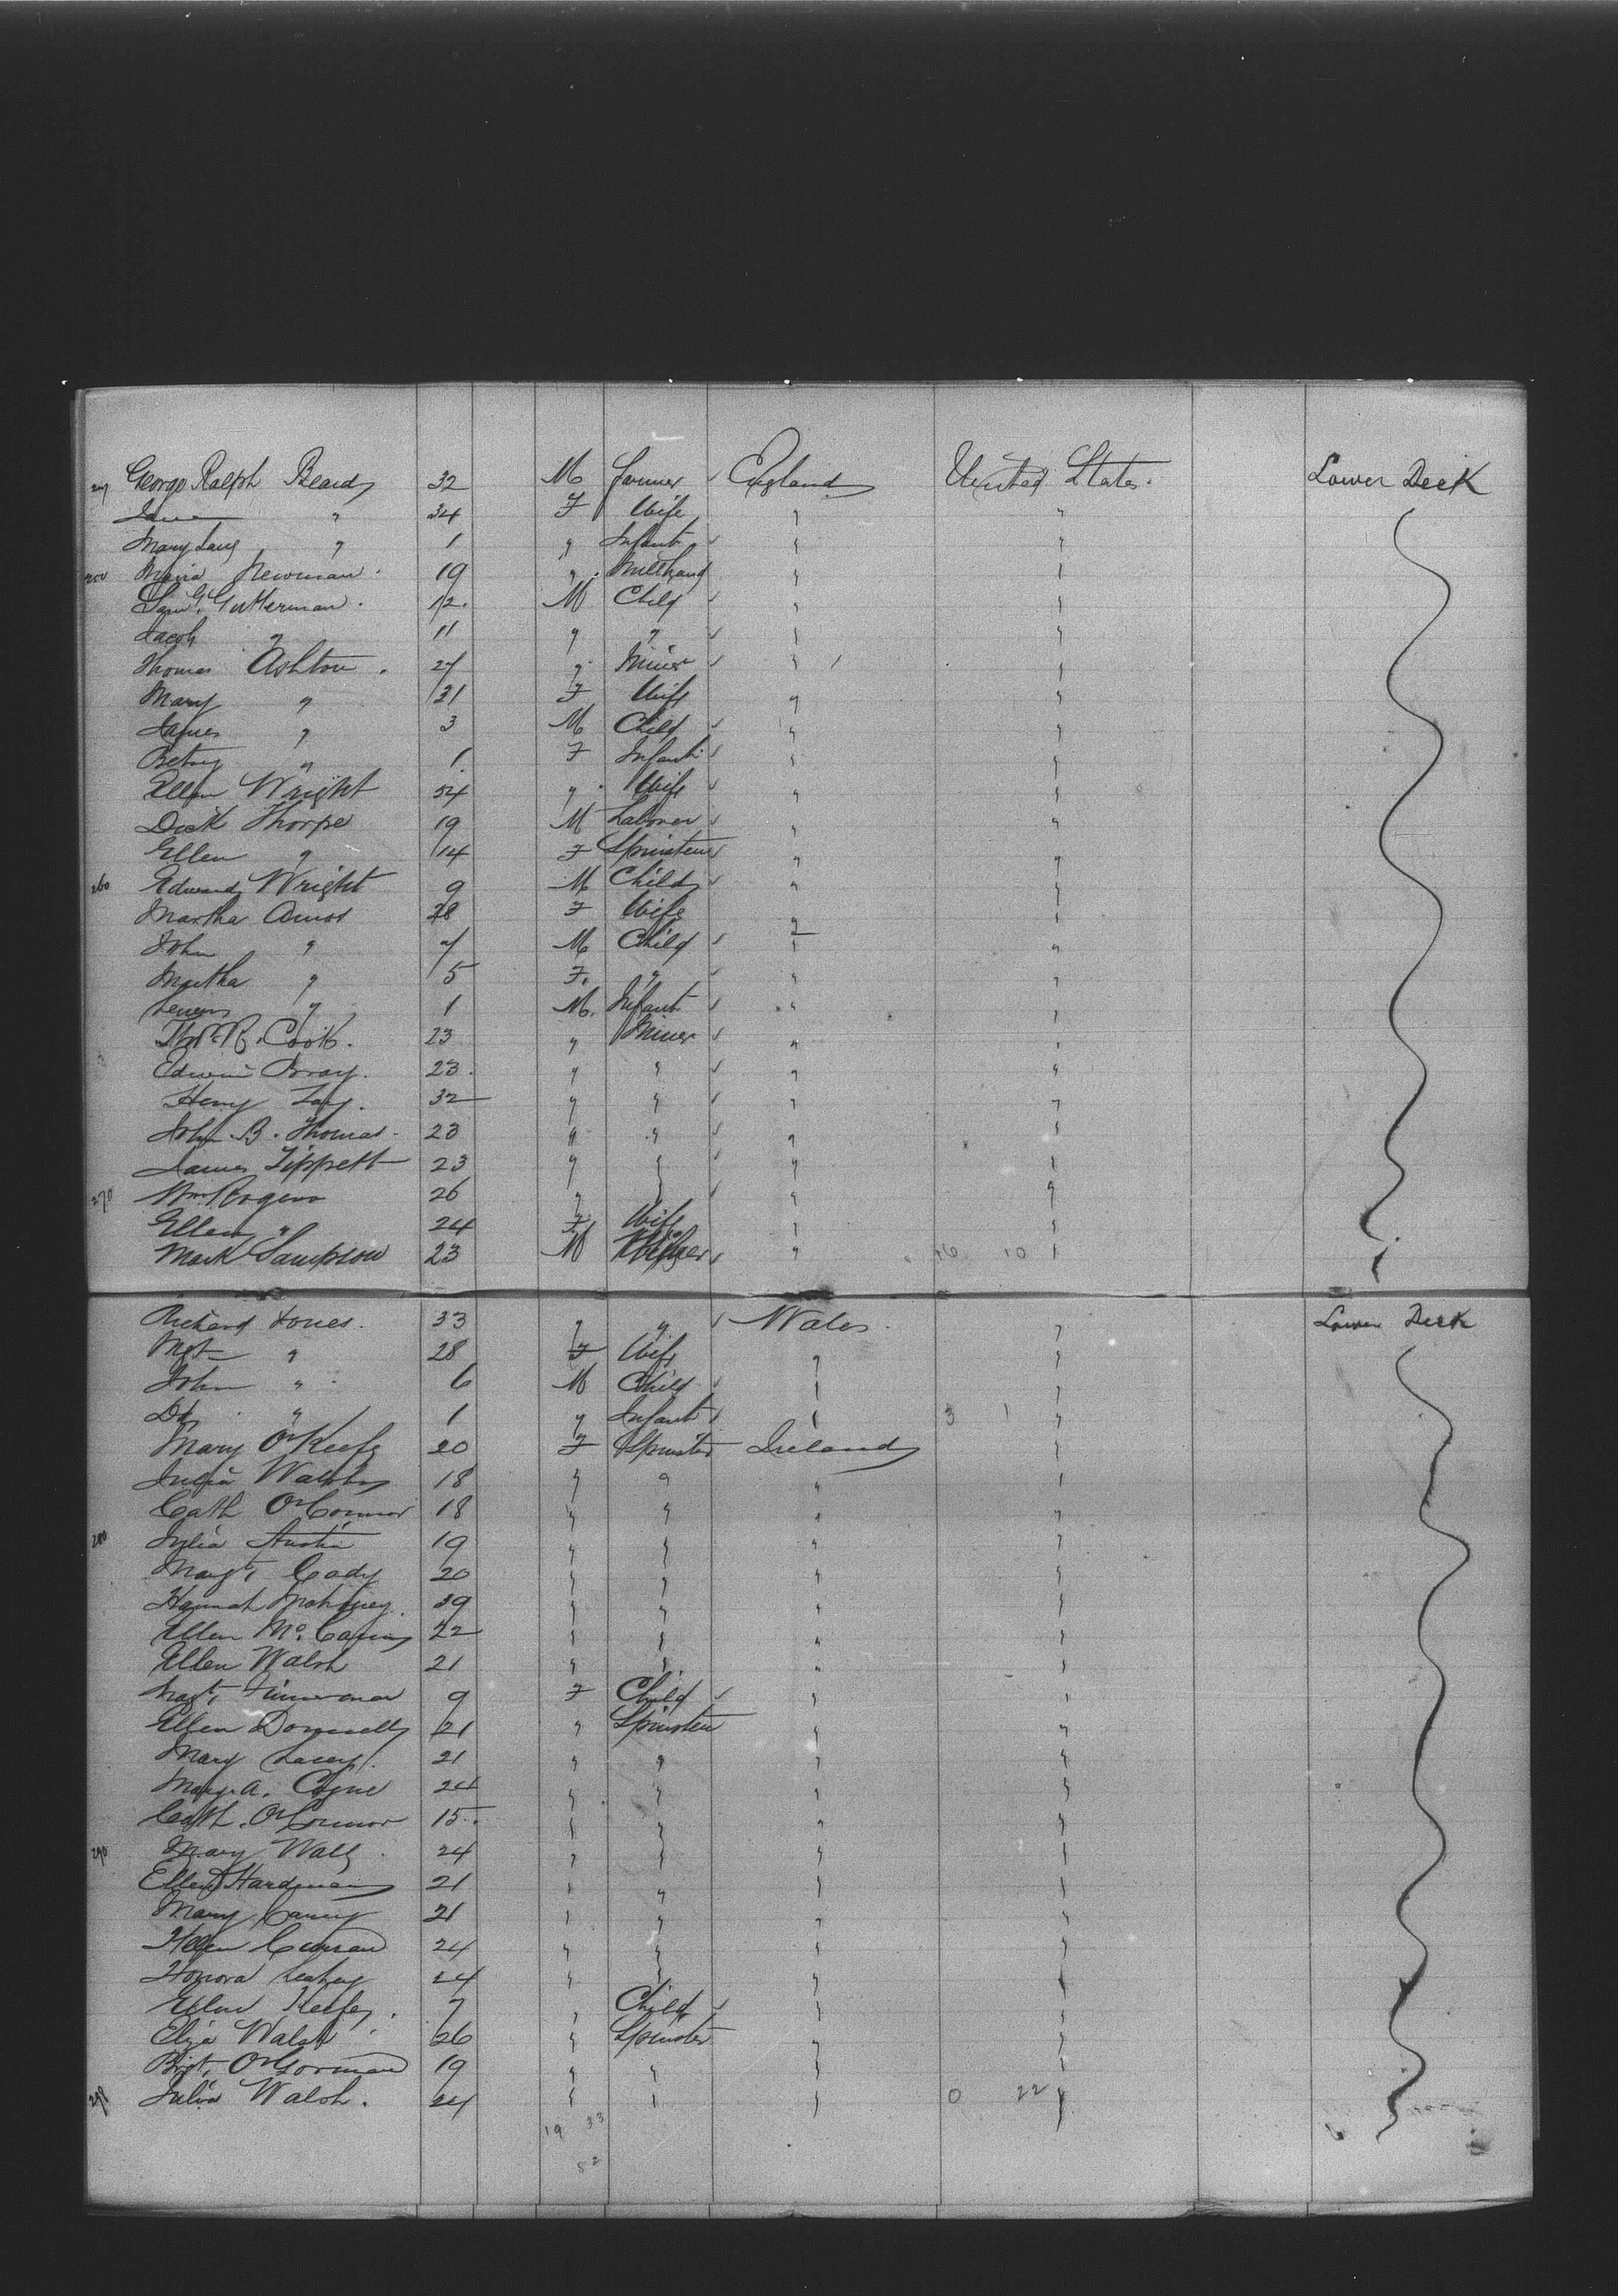 George Ralph Beard 32 M Farmer England United States. Lower Deck
Jane " 34 F Wife " "
Mary Jane " 1 " Infant " "
250 Maria Newman. 19 " Millhand " "
Saml. Gutterman. 12. M Child " "
Jacob " 11 " " " "
Thomas Ashton. 27 " Miner " "
Mary " 21 F Wife " "
James " 3 M Child " "
Betsy " 1 F Infant " "
Ellen Wright 54 " Wife " "
Dick Thorpe 19 M Laborer " "
Ellen " 14 F Spinster " "
260 Edward Wright 9 M Child " "
Martha Amos 28 F Wife " "
John " 7 M Child " "
Martha " 5 F. " " "
" 1 M. Infant " "
Thos. R. Cook. 23 " Miner " "
Edwin Bray. 23. " " " "
Henry 32 " " " "
John B. Thomas 23 " " " "
James Tippett 23 " " " "
270 Wm Rogers 26 " " " "
Ellen " 24 F Wife " "
Mark Sampson 23 M " 10 "
Richard Jones. 33 " " Wales. " Lower Deck
Mgt " 28 F Wife " "
John " 6 M Child " "
" 1 " Infant " 3 1 "
Mary O'Keefe 20 F Spinster Ireland "
Julia Walsh 18 " " " "
Cath O'Connor 18 " " " "
280 Julia Austin 19 " " " "
Margt. Cody 20 " " " "
Hannah Mahoney. 39 " " " "
Ellen 22 " " " "
Ellen Walsh 21 " " " "
Margt. 9 F Child " "
Ellen Donnelly 21 " Spinster " "
Mary Lacey. 21 " " " "
Mary A. Coyne 24 " " " "
Cath. O'Connor 15. " " " "
290 Mary Wall 24 " " " "
Ellen Hardiman 21 " " " "
Mary 21 " " " "
Curran 24 " " " "
Honora Leahey 24 " " " "
Ellen Keefe. 7 " Child " "
Eliza Walsh 26 " Spinster " "
Bigt. O'Gorman 19 " " " "
298 Julia Walsh. 24 " " " 0 22 "
19 33
52